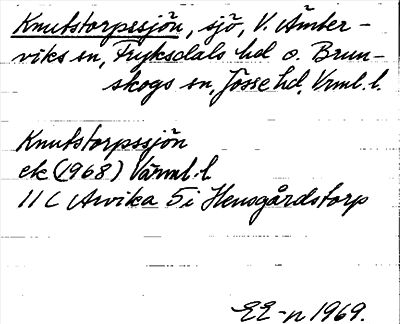 Knutstorpssjön, sjö, V. Ämter-
viks sn, Fryksdals hd o. Brun-
skogs sn, Jösse hd, Vrml. l.
Knutstorpssjön
ek (1968) Värml. l
11 C Arvika 5i Hensgårdstorp
EE-n 1969.